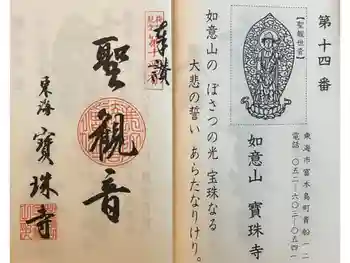 第十四番
【聖観世音】
東海市富木島町首船一二
電話 〇五二-六〇三-〇五四一
如意山 寶珠寺
如意山の ぼさつの光 宝珠なる
大悲の誓い あらたなりけり。
奉讃
聖観音
東海 寶珠寺